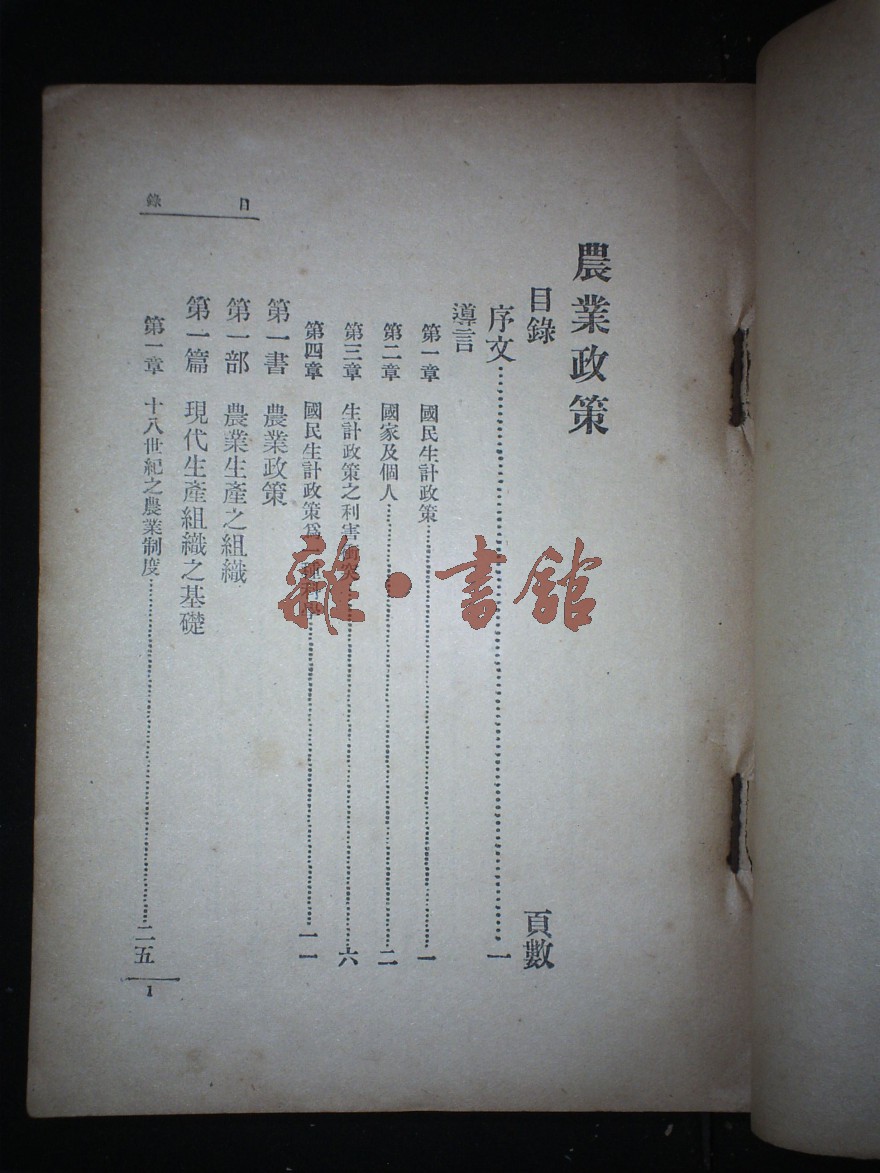 農業政策
目錄 頁數
序文 一
導言
第一章 國民生計政策 一
第二章 國家及個人 二
第三章 生計政策之利害衝突 六
第四章 國民生計政策爲一種科學 一一
第一書 農業政策
第一部 農業生產之組織
第一篇 現代生產組織之基礎
第一章 十八世紀之農業制度 二五
目錄
1
雜·書館